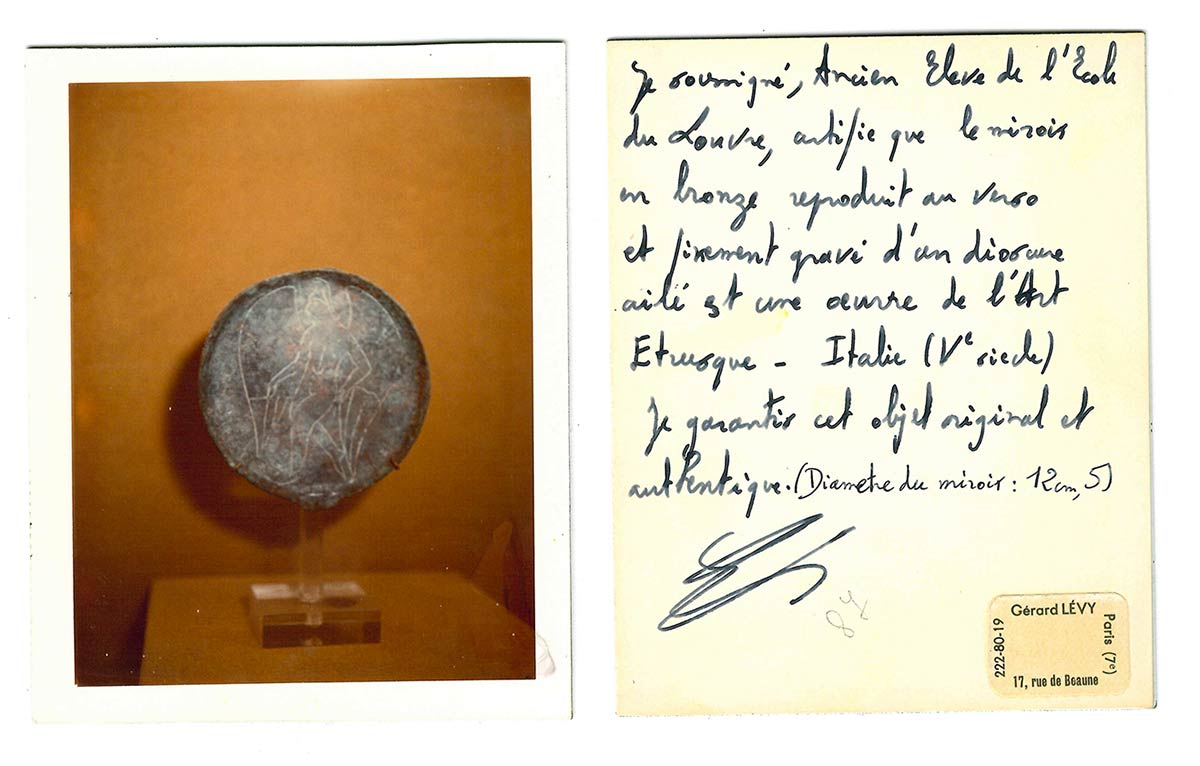 Je soussigné, Ancien Eleve de l'Ecole
du Louvre, certifie que le miroir
en bronze reproduit au verso
et finement gravé d'un dioscure
ailé est une œuvre de l'Art
Etrusque - Italie (Ve siecle)
Je garantis cet objet original et
authentique. (Diametre du miroir : 12cm,5)
Gérard LÉVY
222-80-19
Paris (7e)
17, rue de Beaune